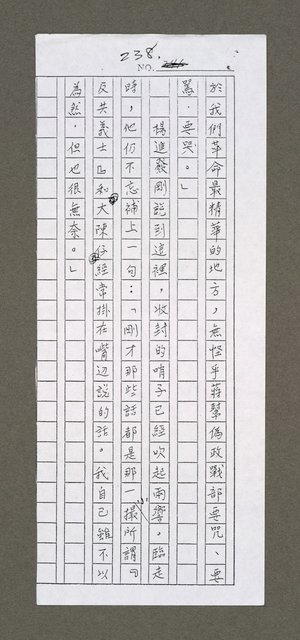 238.
NO.
於我們革命最精華的地方，無怪乎蔣幫偽政戰部要咒、要
罵、要哭。」
楊進發剛說到這裡，收封的哨子已經吹起兩響。臨走
時，他仍不忘補上一句：「剛才那些話都是那一小撮所謂『
反共義士』和大陳仔經常掛在嘴辺說的話。我自己雖不以
為然，但也很無奈。」